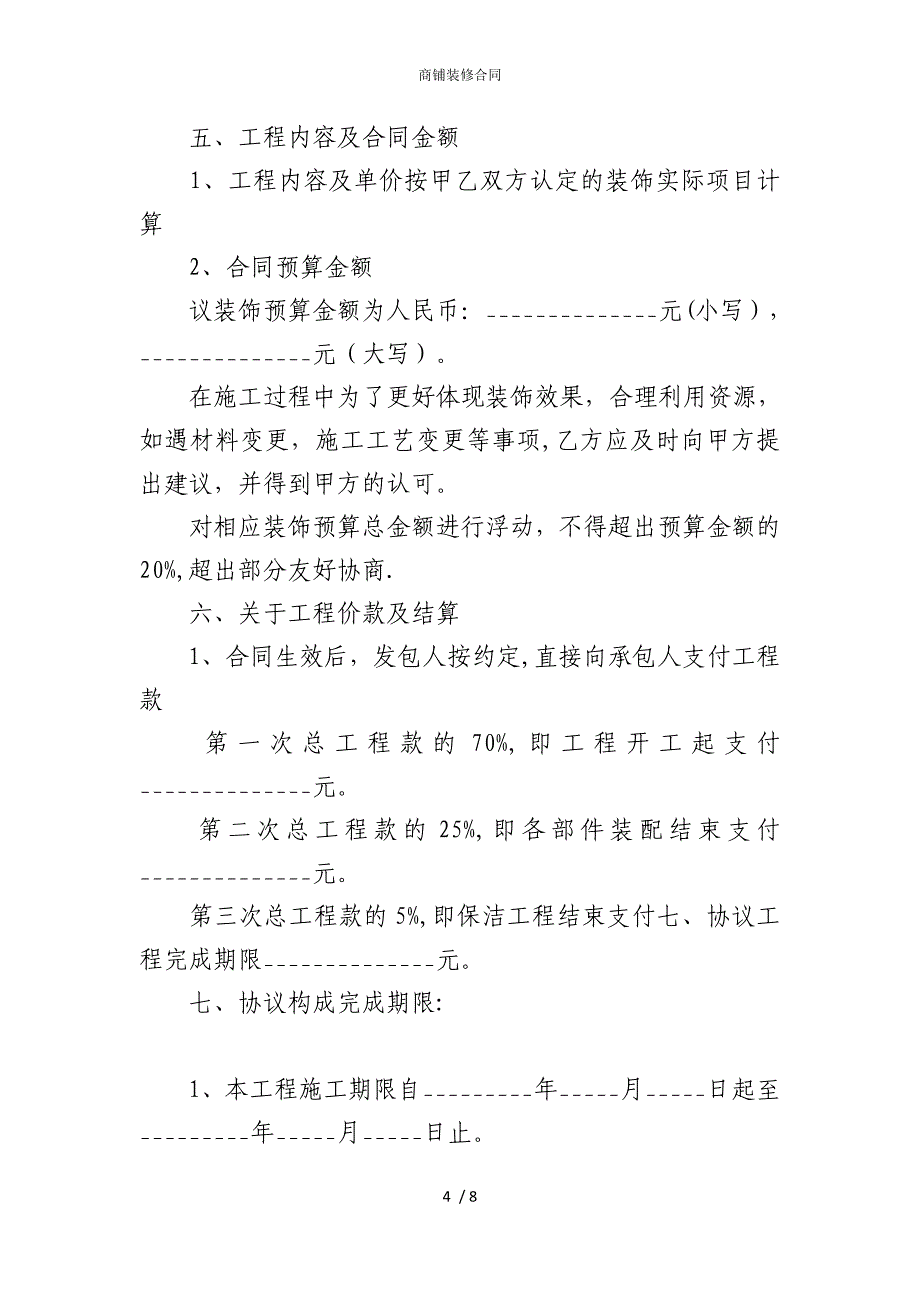 商铺装修合同
五、工程内容及合同金额
1、工程内容及单价按甲乙双方认定的装饰实际项目计
算
2、合同预算金额
议装饰预算金额为人民币：______________元(小写），
______________元（大写）。
在施工过程中为了更好体现装饰效果，合理利用资源，
如遇材料变更，施工工艺变更等事项,乙方应及时向甲方提
出建议，并得到甲方的认可。
对相应装饰预算总金额进行浮动，不得超出预算金额的
20%,超出部分友好协商.
六、关于工程价款及结算
1、合同生效后，发包人按约定,直接向承包人支付工程
款
第一次总工程款的 70%,即工程开工起支付
______________元。
第二次总工程款的 25%,即各部件装配结束支付
______________元。
第三次总工程款的 5%,即保洁工程结束支付七、协议工
程完成期限______________元。
七、协议构成完成期限:
1、本工程施工期限自_________年_____月_____日起至
_________年_____月_____日止。
4 / 8